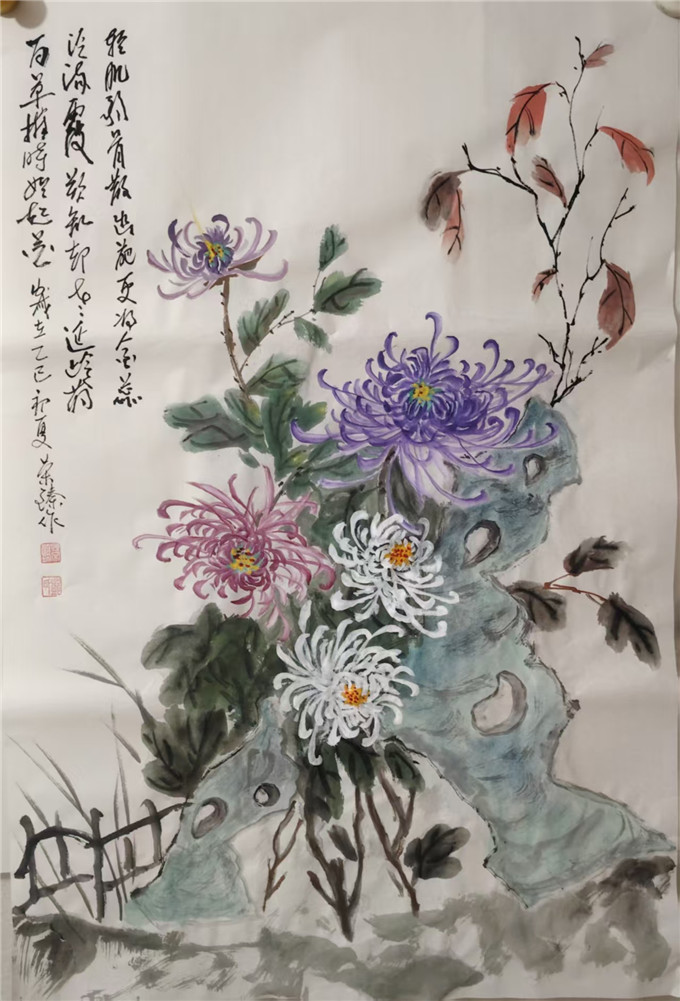 轻肌弱骨散幽葩更将金蕊
泛流霞欲知却老延龄药
百草摧时始起花 岁在乙巳初夏 荣臻作